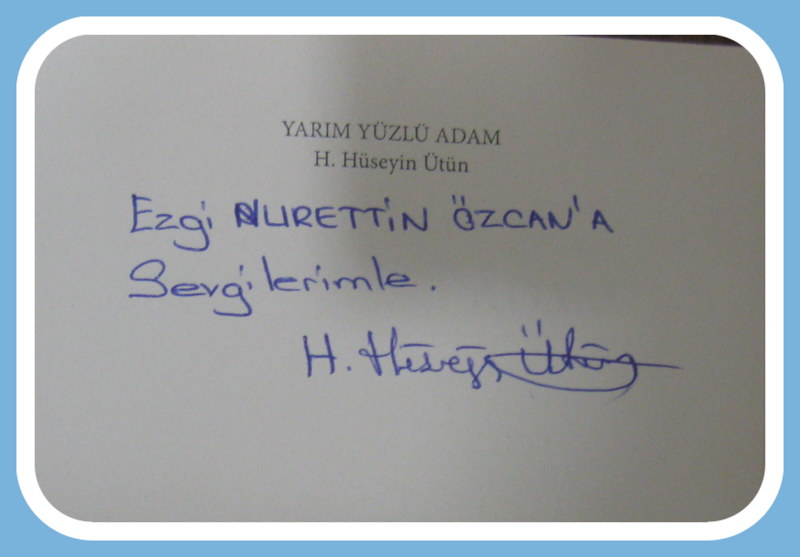 YARIM YÜZLÜ ADAM
H. Hüseyin Ütün
Ezgi NURETTİN ÖZCAN'A
Sevgilerimle.
H. Hüseyin Ütün